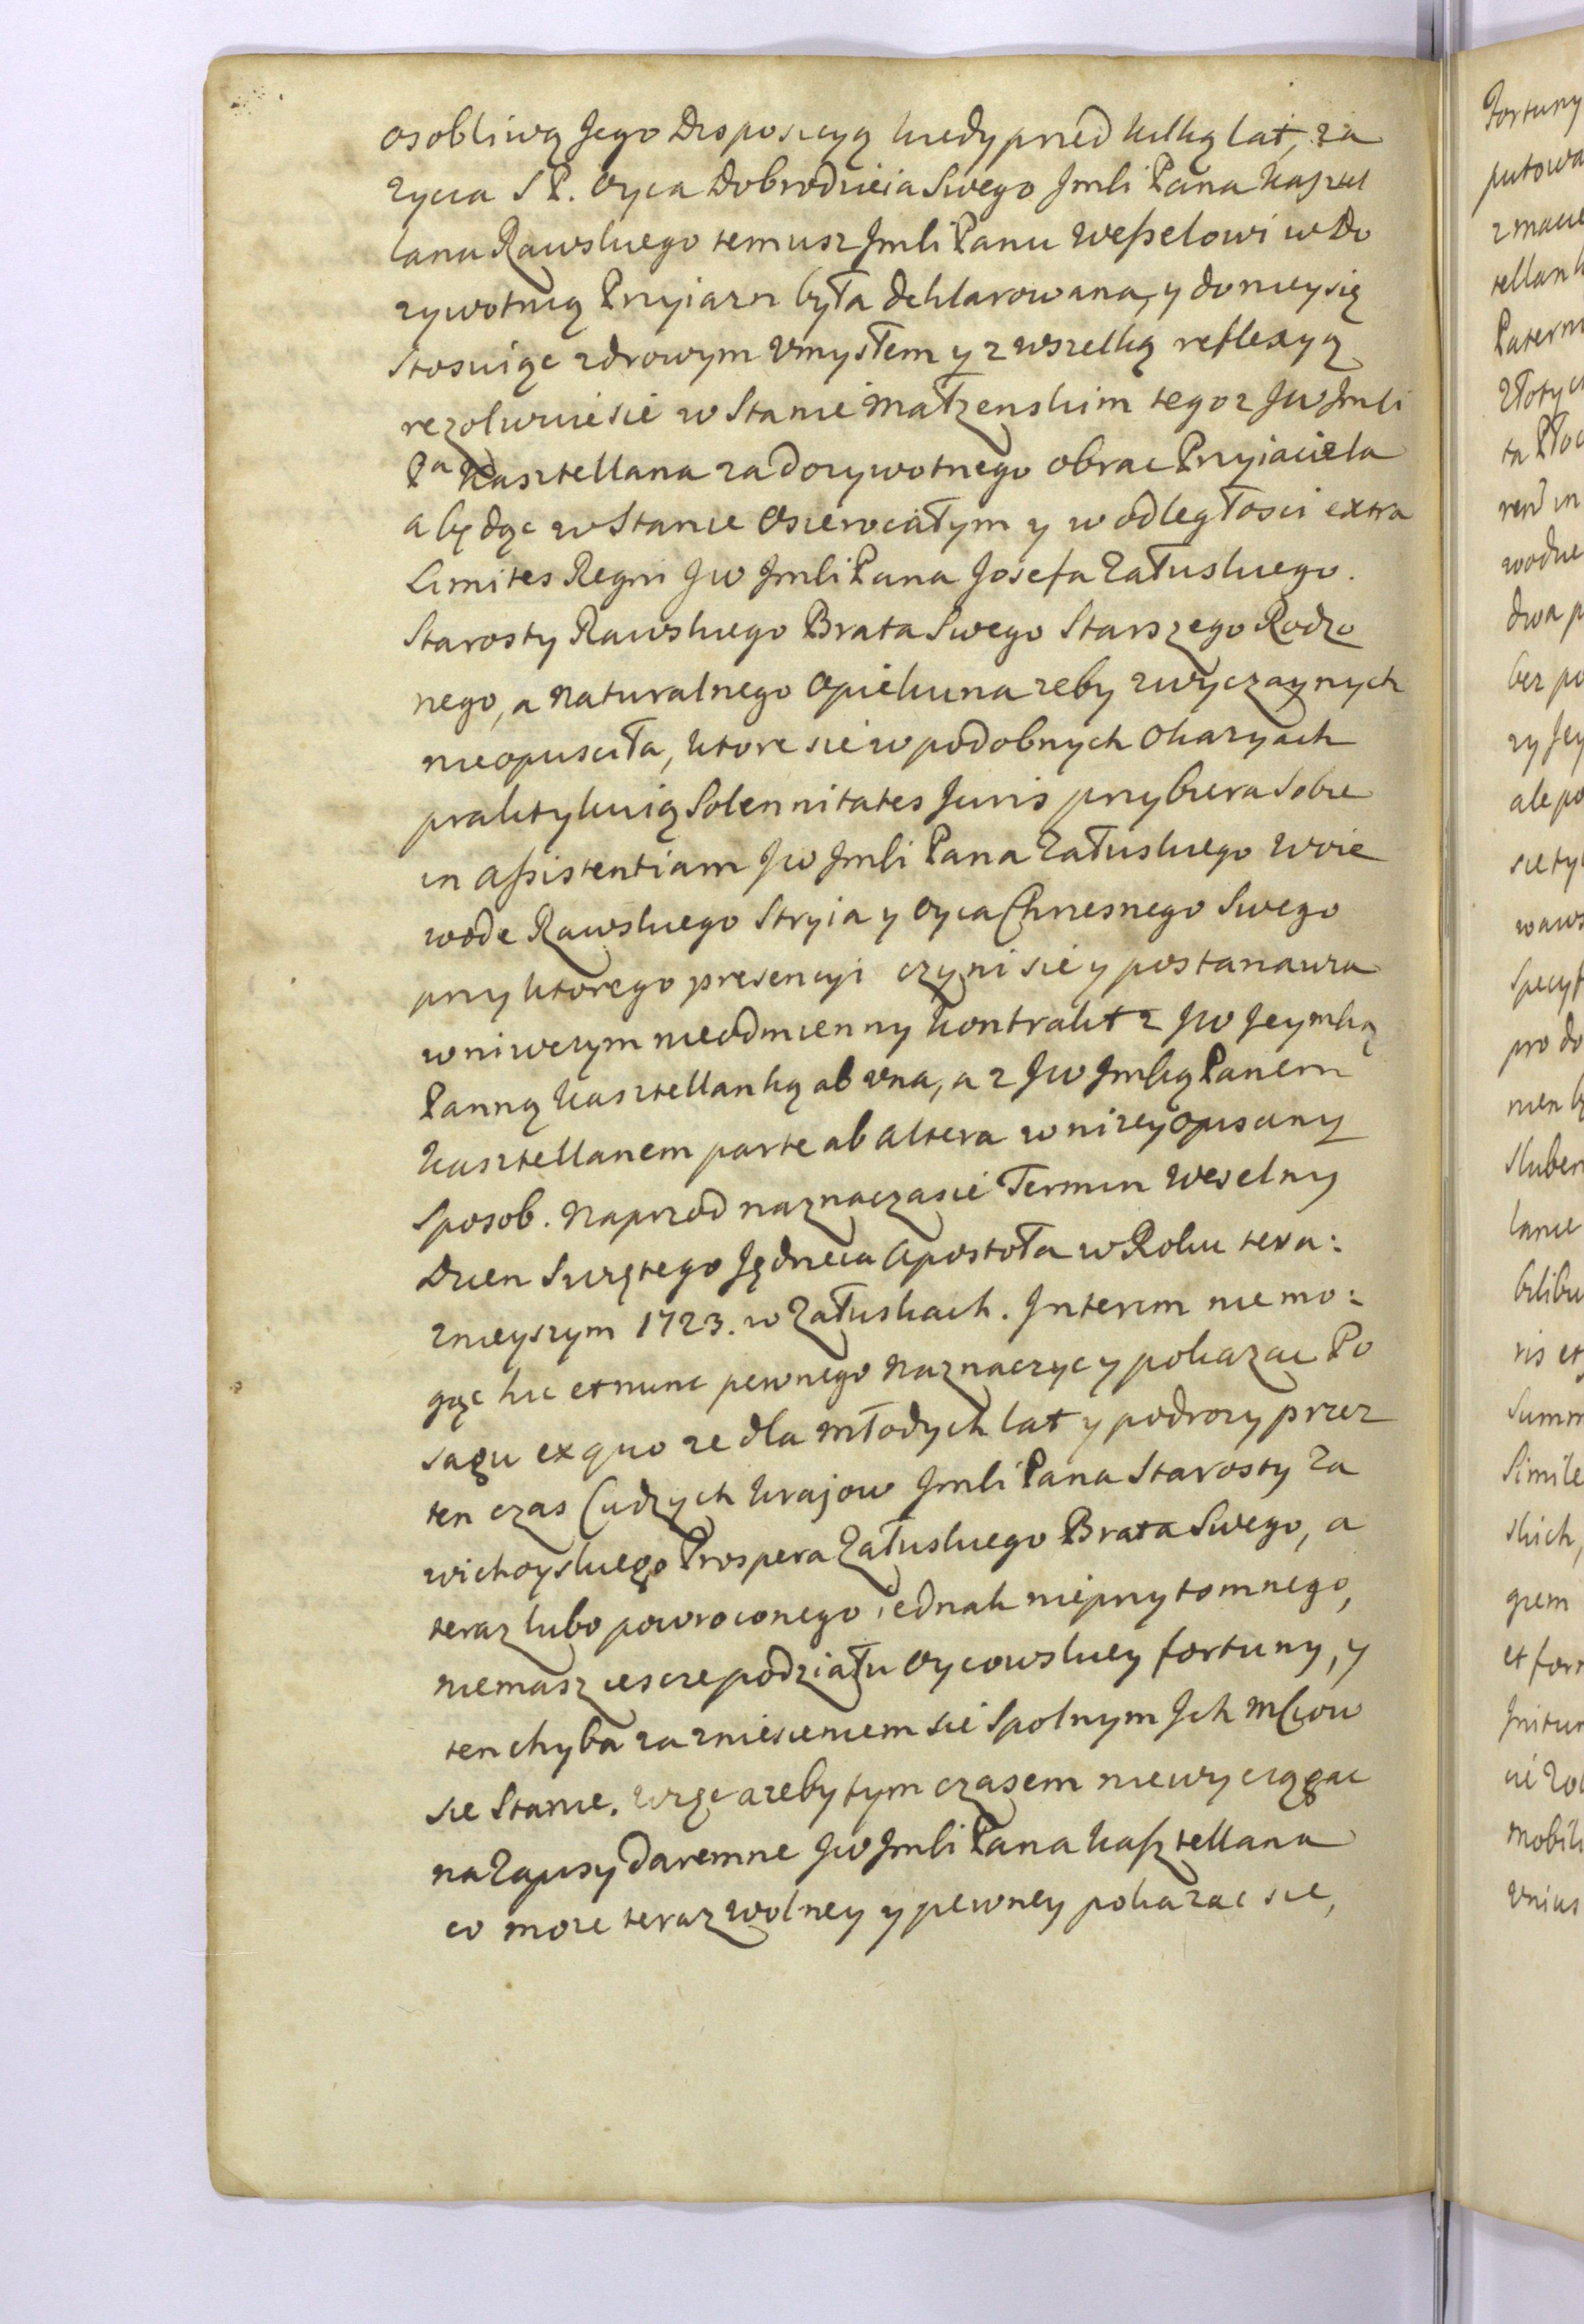 osobliwą Jego Disposicyą kiedy przed kilką lat, za
zycia S P. Oyca Dobrodzieia Swego Jmści Pana Kasztel
lana Rawskiego temusz Jmści Panu Wesselowi w Do
zywotnią Przyiazn była deklarowana, y do niey się
stosuiąc zdrowym Umysłem y z wszelką reflexyą
rezolwuie sie w Stanie Małzenskim tegoz JW Jmści
Pa Kasztellana za dozywotnego obrac Przyiaciela
a będąc w Stanie Osierociałym y w odległosci extra
Limites Regni JW Jmści Pana Josefa Załuskiego.
Starosty Rawskiego Brata Swego Starszego Rodzo
nego, a Naturalnego Opiekuna zeby zwyczaynych
nieopusciła, ktore sie w podobnych Okazyach
praktykuią Solennitates Juris przybiera Sobie
in Assistentiam JW Jmści Pana Załuskiego Woie
wode Rawskiego Stryia y Oyca Chrzesnego Swego
przy ktorego presencyi czyni sie y postanawia
w niwczym nieodmienny Kontrakt z JW Jeymscią
Panną Kasztellanką ab una, a z JW Jmscią Panem
Kasztellanem parte ab altera w nizey Opisany
Sposob. Naprzod naznacza sie Termin Weselny
Dzien Swiętego Jędrzeia Apostoła w Roku tera:
znieyszym 1723. w Załuskach. Interim nie mo:
gąc hic et nunc pewnego Naznaczyc y pokazac Po
sagu ex quo ze dla młodych lat y podrozy przez
ten czas Cudzych Krajow Jmści Pana Starosty Za
wichoyskiego Prospera Załuskiego Brata Swego, a
teraz lubo powroconego iednak nieprzytomnego,
niemasz iescze podziału Oycowskiey fortuny, y
ten chyba za zniesieniem sie Spolnym Jch Mściow
sie Stanie. Więc azeby tym czasem niewyciągac
na Zapisy daremne JW Jmści Pana Kasztellana
co moze teraz wolney y pewney pokazac sie,